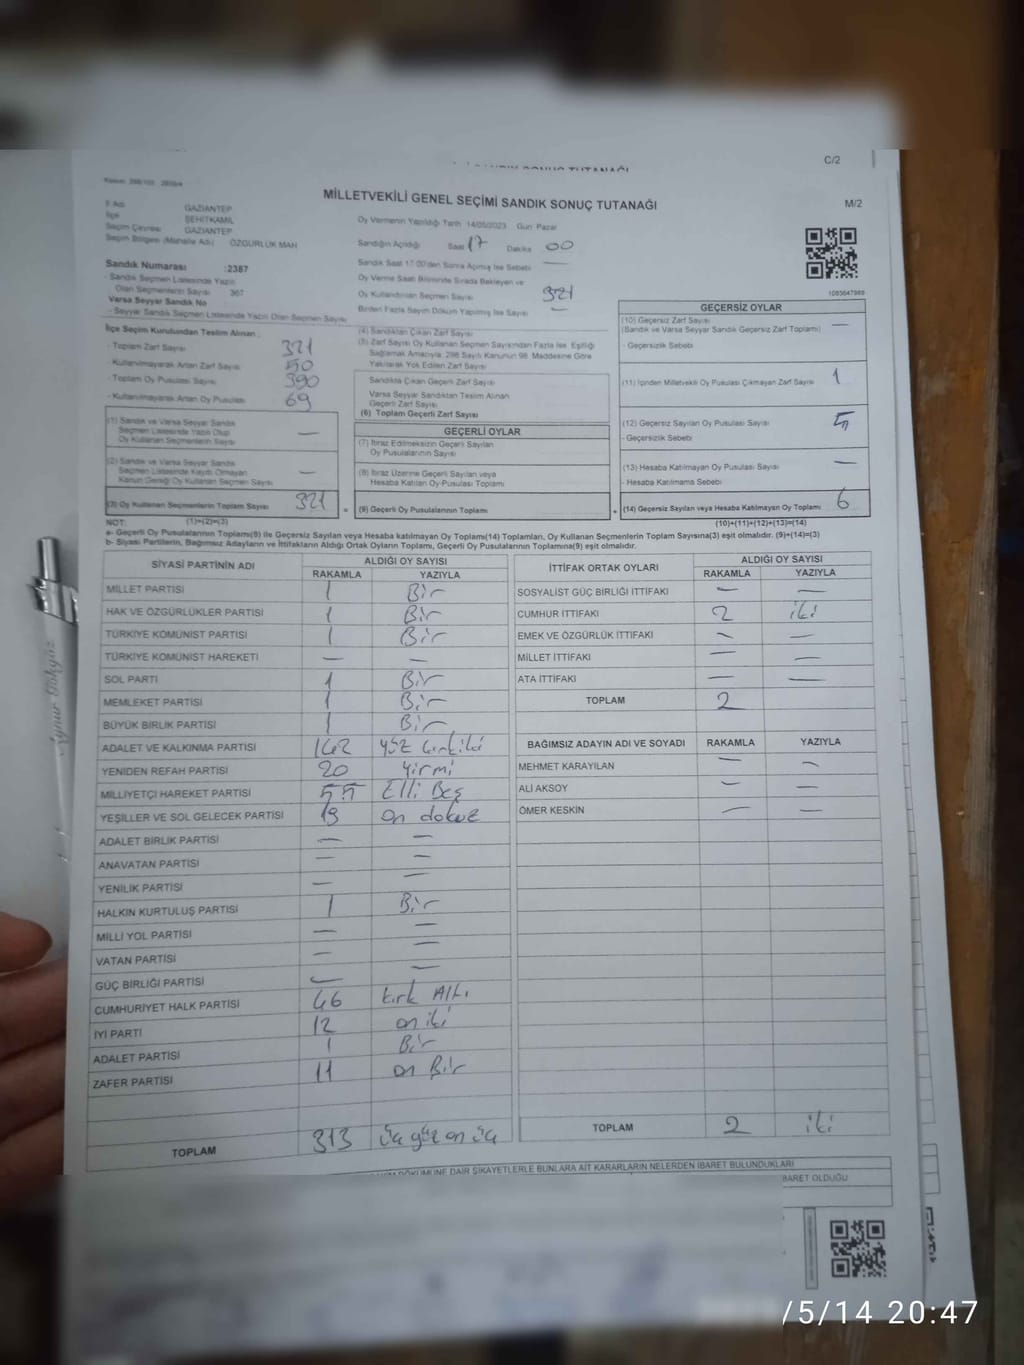 C/2
MİLLETVEKİLİ GENEL SEÇİMİ SANDIK SONUÇ TUTANAĞI
M/2
İl Adı GAZİANTEP
İlçe ŞEHİTKAMİL
Seçim Çevresi GAZİANTEP
Seçim Bölgesi (Mahalle Adı) ÖZGÜRLÜK MAH
Oy Vermenin Yapıldığı Tarih 14/05/2023 Gün Pazar
Sandığın Açıldığı Saat 17 Dakika 00
Sandık Saat 17:00'den Sonra Açılmış İse Sebebi —
Oy Verme Saati Bitiminde Sırada Bekleyen ve
Oy Kullandırılan Seçmen Sayısı 321
Birden Fazla Sayım Döküm Yapılmış İse Sayısı —
1083647989
Sandık Numarası :2387
- Sandık Seçmen Listesinde Yazılı
Olan Seçmenlerin Sayısı 367
Varsa Seyyar Sandık No
- Seyyar Sandık Seçmen Listesinde Yazılı Olan Seçmen Sayısı
İlçe Seçim Kurulundan Teslim Alınan :
- Toplam Zarf Sayısı 321
- Kullanılmayarak Artan Zarf Sayısı 50
- Toplam Oy Pusulası Sayısı 390
- Kullanılmayarak Artan Oy Pusulası 69
(1) Sandık ve Varsa Seyyar Sandık
Seçmen Listesinde Yazılı Olup
Oy Kullanan Seçmenlerin Sayısı —
(2) Sandık ve Varsa Seyyar Sandık
Seçmen Listesinde Kaydı Olmayan
Kanun Gereği Oy Kullanan Seçmen Sayısı —
(3) Oy Kullanan Seçmenlerin Toplam Sayısı 321
(4) Sandıktan Çıkan Zarf Sayısı
(5) Zarf Sayısı Oy Kullanan Seçmen Sayısından Fazla İse, Eşitliği
Sağlamak Amacıyla, 298 Sayılı Kanunun 98. Maddesine Göre
Yakılarak Yok Edilen Zarf Sayısı
Sandıkta Çıkan Geçerli Zarf Sayısı
Varsa Seyyar Sandıktan Teslim Alınan
Geçerli Zarf Sayısı
(6) Toplam Geçerli Zarf Sayısı
GEÇERLİ OYLAR
(7) İtiraz Edilmeksizin Geçerli Sayılan
Oy Pusulalarının Sayısı
(8) İtiraz Üzerine Geçerli Sayılan veya
Hesaba Katılan Oy Pusulası Toplamı
= (9) Geçerli Oy Pusulalarının Toplamı
GEÇERSİZ OYLAR
(10) Geçersiz Zarf Sayısı —
(Sandık ve Varsa Seyyar Sandık Geçersiz Zarf Toplamı)
- Geçersizlik Sebebi
(11) İçinden Milletvekili Oy Pusulası Çıkmayan Zarf Sayısı 1
(12) Geçersiz Sayılan Oy Pusulası Sayısı 5
- Geçersizlik Sebebi
(13) Hesaba Katılmayan Oy Pusulası Sayısı —
- Hesaba Katılmama Sebebi
+ (14) Geçersiz Sayılan veya Hesaba Katılmayan Oy Toplamı 6
NOT: (1)+(2)=(3) (10)+(11)+(12)+(13)=(14)
a- Geçerli Oy Pusulalarının Toplamı(9) ile Geçersiz Sayılan veya Hesaba katılmayan Oy Toplamı(14) Toplamları, Oy Kullanan Seçmenlerin Toplam Sayısına(3) eşit olmalıdır. (9)+(14)=(3)
b- Siyasi Partilerin, Bağımsız Adayların ve İttifakların Aldığı Ortak Oyların Toplamı, Geçerli Oy Pusulalarının Toplamına(9) eşit olmalıdır.
SİYASİ PARTİNİN ADI ALDIĞI OY SAYISI
RAKAMLA YAZIYLA
MİLLET PARTİSİ 1 Bir
HAK VE ÖZGÜRLÜKLER PARTİSİ 1 Bir
TÜRKİYE KOMÜNİST PARTİSİ 1 Bir
TÜRKİYE KOMÜNİST HAREKETİ — —
SOL PARTİ 1 Bir
MEMLEKET PARTİSİ 1 Bir
BÜYÜK BİRLİK PARTİSİ 1 Bir
ADALET VE KALKINMA PARTİSİ 142 yüz kırkiki
YENİDEN REFAH PARTİSİ 20 yirmi
MİLLİYETÇİ HAREKET PARTİSİ 55 Elli Beş
YEŞİLLER VE SOL GELECEK PARTİSİ 19 on dokuz
ADALET BİRLİK PARTİSİ — —
ANAVATAN PARTİSİ — —
YENİLİK PARTİSİ — —
HALKIN KURTULUŞ PARTİSİ 1 Bir
MİLLİ YOL PARTİSİ — —
VATAN PARTİSİ — —
GÜÇ BİRLİĞİ PARTİSİ — —
CUMHURİYET HALK PARTİSİ 46 kırk Altı
İYİ PARTİ 12 on iki
ADALET PARTİSİ 1 Bir
ZAFER PARTİSİ 11 on Bir
TOPLAM 313 üç yüz on üç
İTTİFAK ORTAK OYLARI ALDIĞI OY SAYISI
RAKAMLA YAZIYLA
SOSYALİST GÜÇ BİRLİĞİ İTTİFAKI — —
CUMHUR İTTİFAKI 2 iki
EMEK VE ÖZGÜRLÜK İTTİFAKI — —
MİLLET İTTİFAKI — —
ATA İTTİFAKI — —
TOPLAM 2
BAĞIMSIZ ADAYIN ADI VE SOYADI RAKAMLA YAZIYLA
MEHMET KARAYILAN — —
ALİ AKSOY — —
ÖMER KESKİN — —
TOPLAM 2 iki
DÖKÜMÜNE DAİR ŞİKAYETLERLE BUNLARA AİT KARARLARIN NELERDEN İBARET BULUNDUKLARI
BARET OLDUĞU
/5/14 20:47